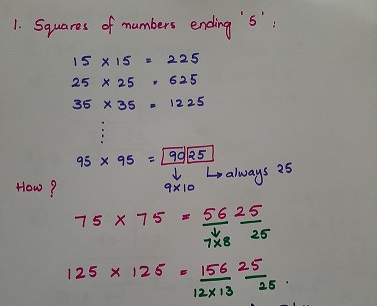 1. Squares of numbers ending '5' :
15 × 15 = 225
25 × 25 = 625
35 × 35 = 1225
⋮
95 × 95 = 9025
↓ ↳ always 25
9×10
How ?
75 × 75 = 56 25
↓
7×8 25
125 × 125 = 156 25
12×13 25.